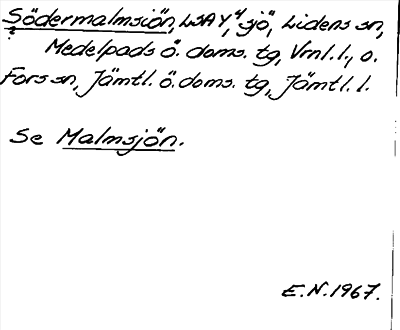 Södermalmsjön, LSAY, sjö, Lidens sn,
Medelpads ö. doms. tg, Vrnl. l., o.
Fors sn, Jämtl. ö. doms. tg, Jämtl. l.
Se Malmsjön.
E.N. 1967.